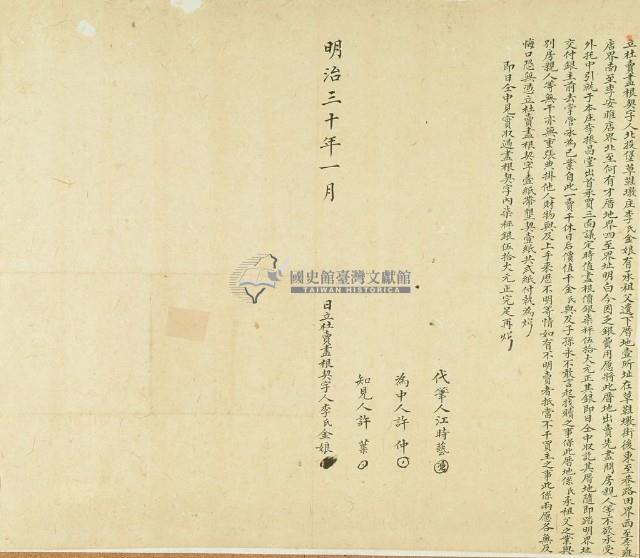 立杜賣盡根契字人北投堡草鞋墩庄李氏金娘有承祖父遺下厝地壹所址在草鞋墩街後東至巷路田界西至李
店界南至李安雅店界北至何有才厝地界四至界址明白今因乏銀費用愿將此厝地出賣先盡問房親人等不欲承受
外托中引就于本庄李振昌堂出首承買三面議定時值盡根價銀柒秤伍拾大元正其銀即日仝中收訖其厝地隨即踏明界址
交付銀主前去掌管永為己業自此一賣千休日后價值千金氏與及子孫永不敢言起找贖之事保此厝地係氏承祖父之業與
別房親人等無干亦無重張典掛他人財物與及上手來歷不明等情如有不明賣者抵當不干買主之事此係兩愿各無反
悔口恐無憑立杜賣盡根契字壹紙帶墾契壹紙共弍紙付執為炤
即日仝中見實收過盡根契字內柒秤銀伍拾大元正完足再炤
代筆人江時藝
為中人許仲
知見人許葉
日立杜賣盡根契字人李氏金娘
明治三十年一月
國史館臺灣文獻館
TAIWAN HISTORICA